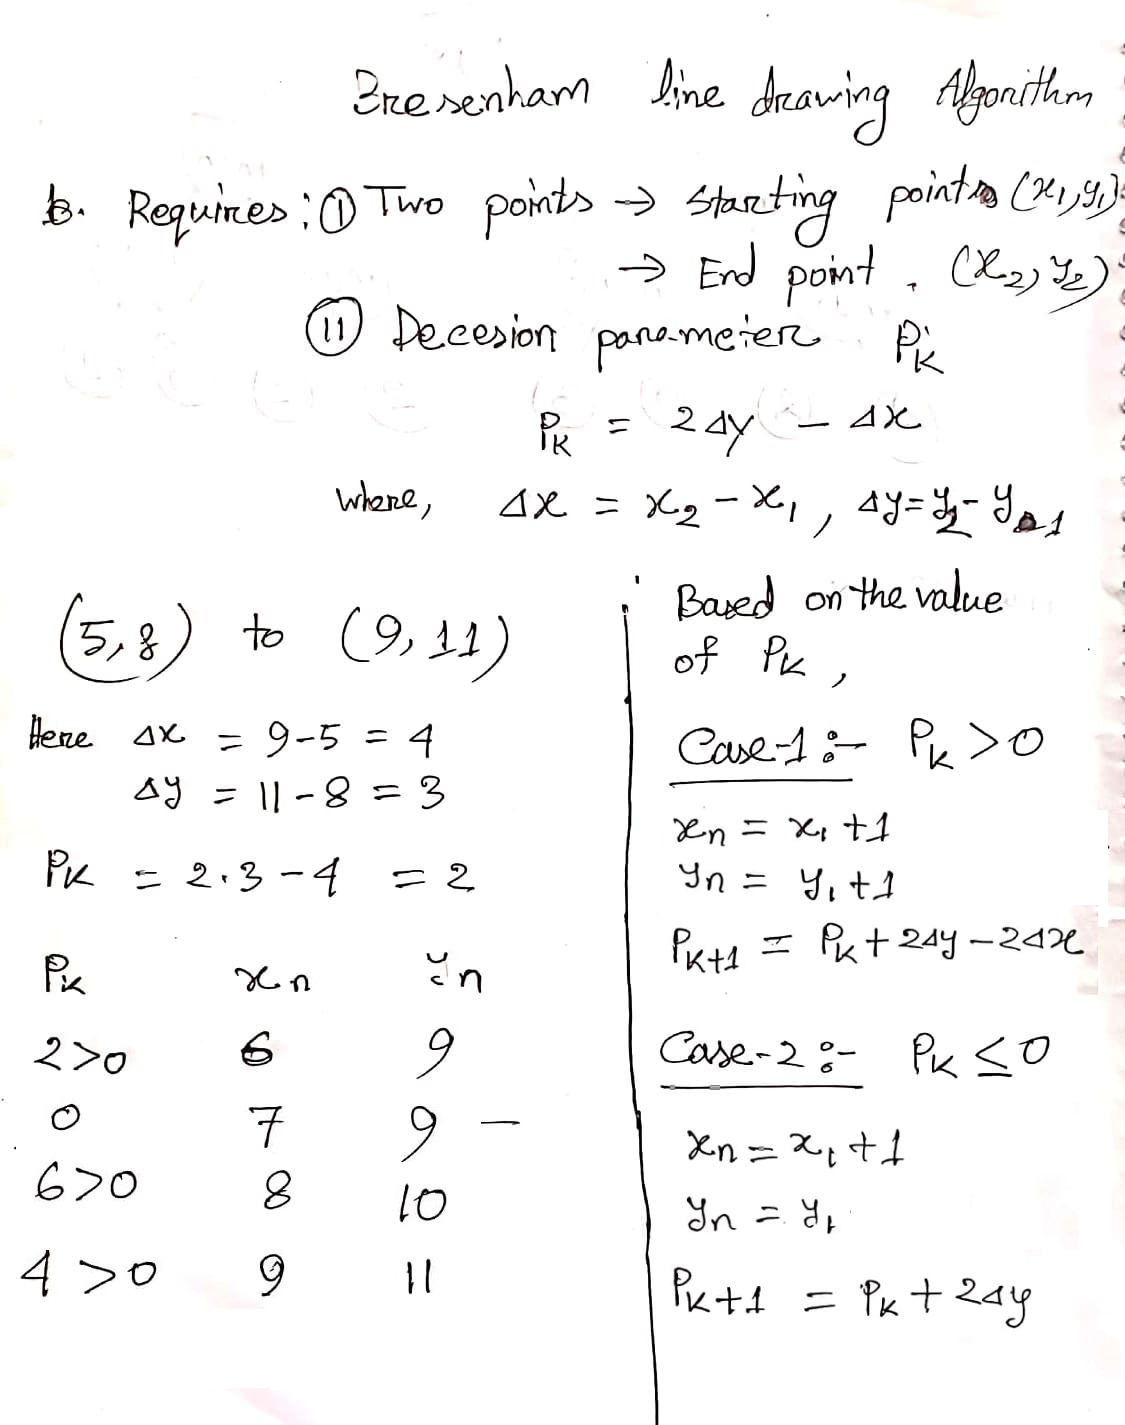 Bresenham line drawing Algorithm
b. Requires: ① Two points → Starting points (x₁,y₁)
→ End point. (x₂, y₂)
⑪ Decesion parameter Pₖ
Pₖ = 2Δy - Δx
where, Δx = x₂ - x₁, Δy = y₂ - y₁
(5,8) to (9,11)
Here Δx = 9-5 = 4
Δy = 11-8 = 3
Pₖ = 2.3-4 = 2
Pₖ xn yn
2>0 6 9
0 7 9 —
6>0 8 10
4>0 9 11
Based on the value
of Pₖ,
Case-1 :- Pₖ>0
xn = x₁+1
yn = y₁+1
Pₖ₊₁ = Pₖ+2Δy-2Δx
Case-2 :- Pₖ ≤ 0
xn = x₁+1
yn = y₁
Pₖ₊₁ = Pₖ+2Δy